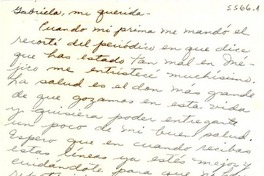 5566.1
Gabriela, mi querida-
Cuando mi prima me mandó el
recorté del periódico en que dice
que has estado tan mal en Mé-
jico me entristecé muchísimo.
La salud es el don más grande
de que gozamos en esta vida
y quisiera poder entregarte
un poco de mi buen salud.
Espero que en cuando recibas
estas líneas ya estés mejor y
cuidándote para que no